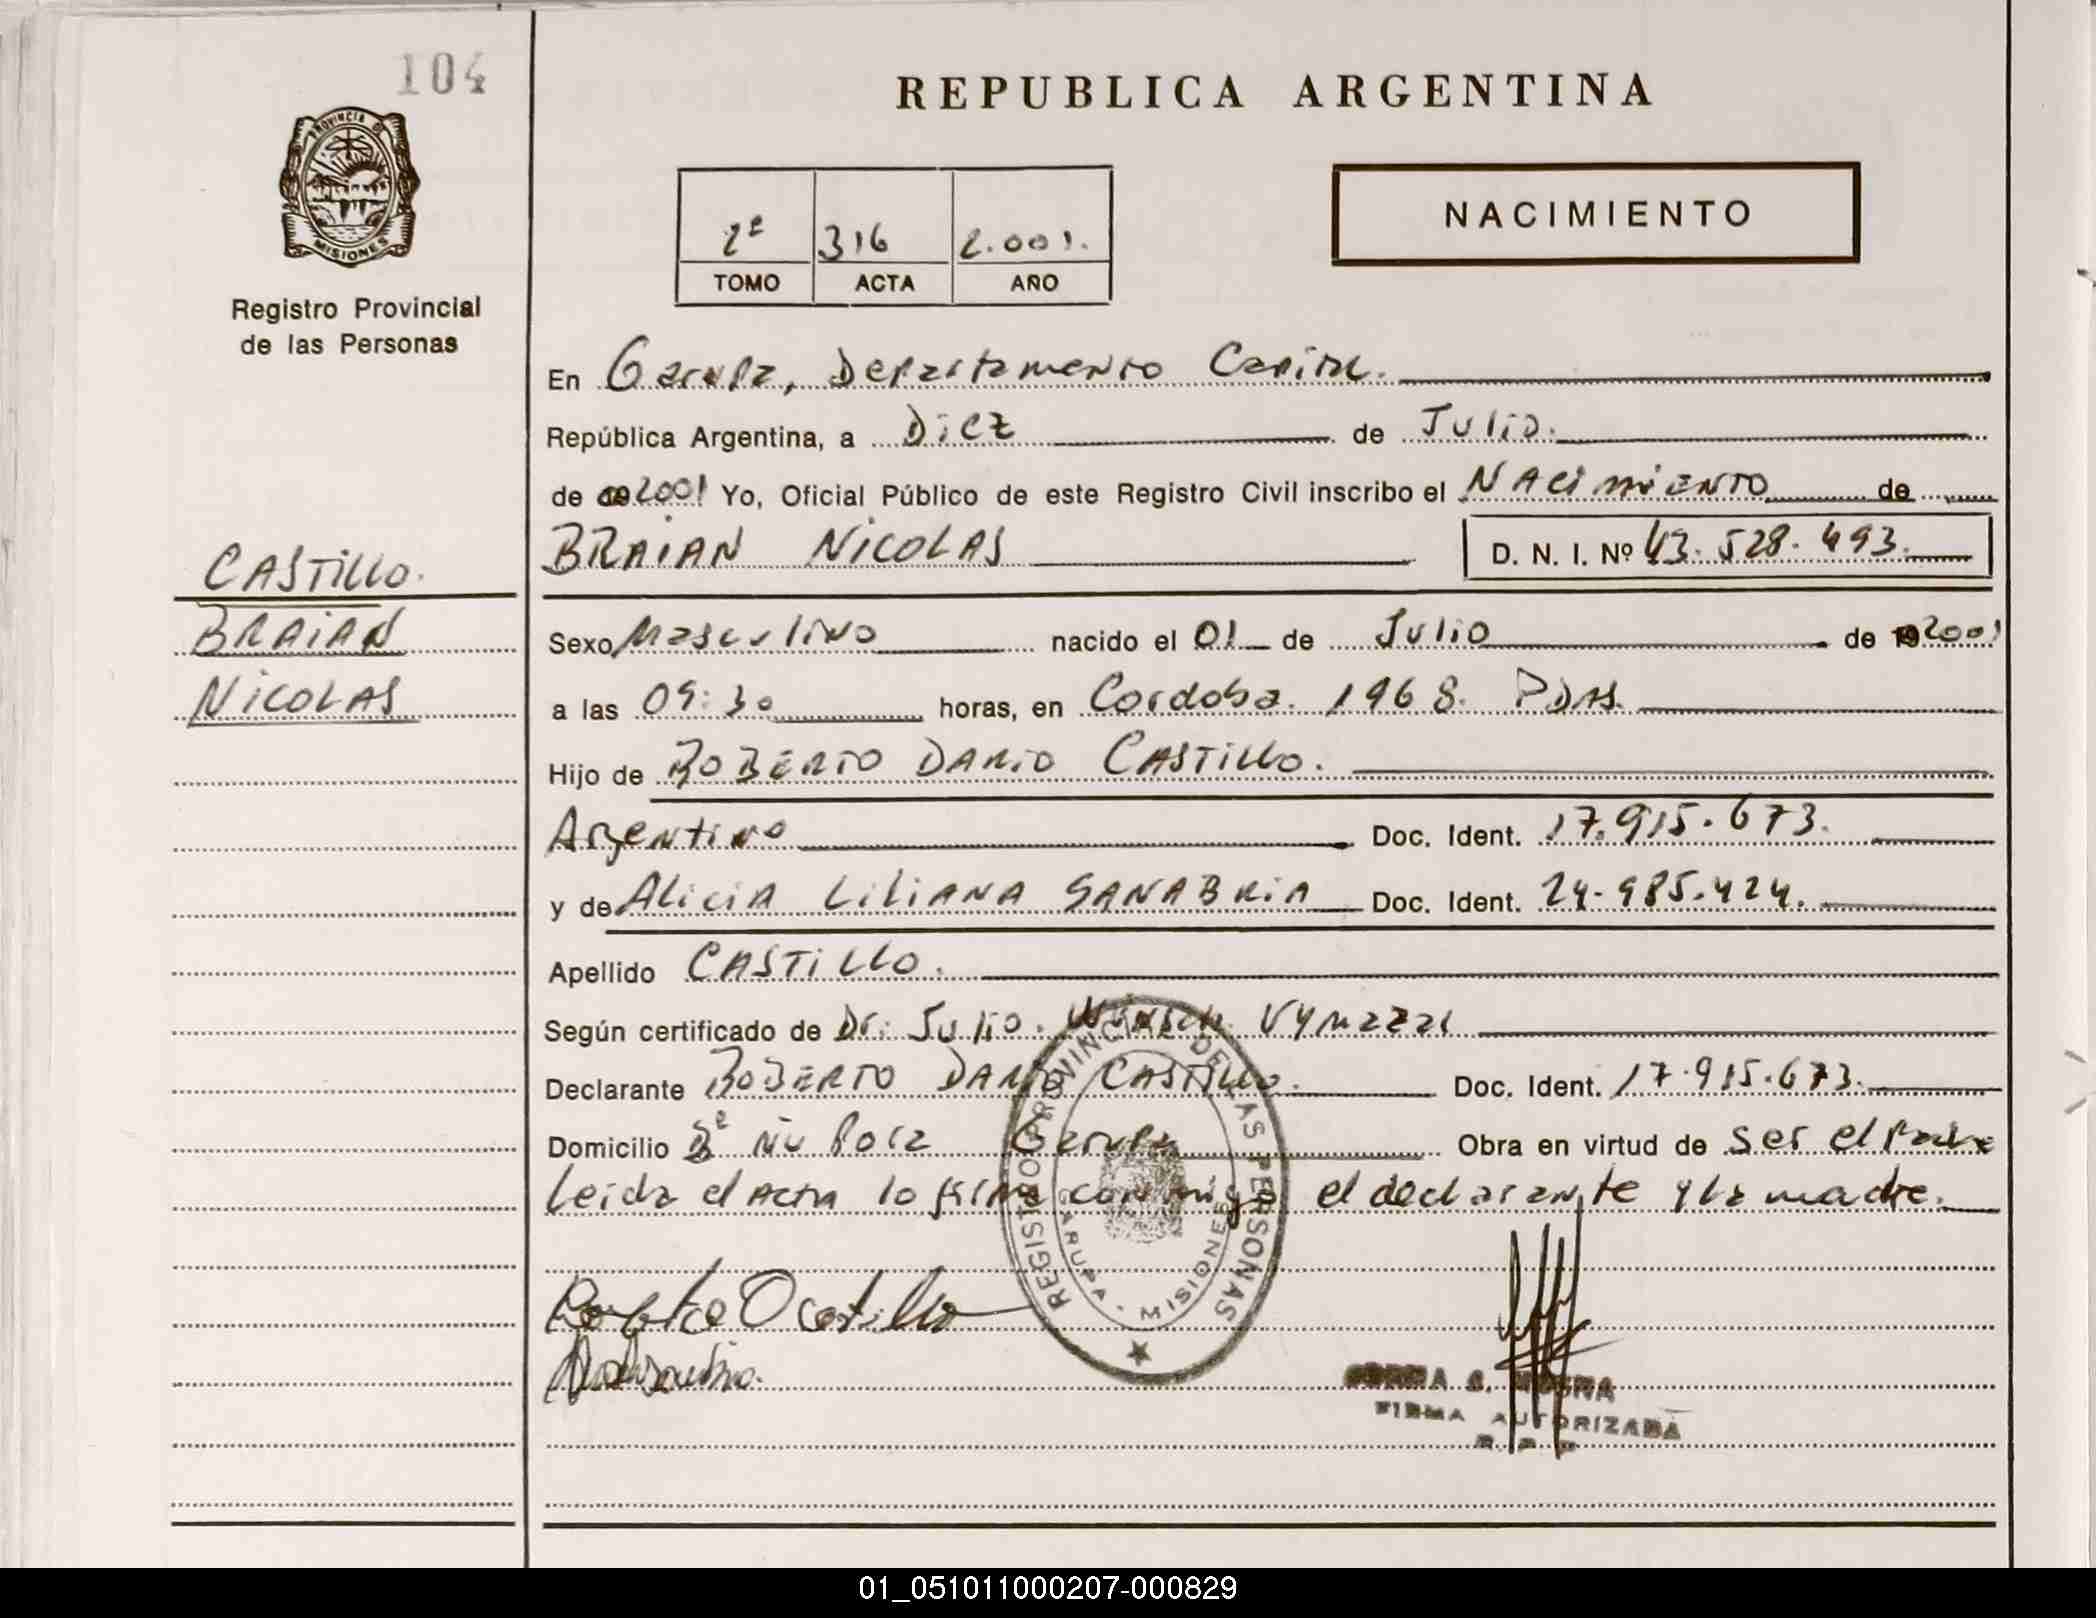 104
REPUBLICA ARGENTINA
PROVINCIA DE
MISIONES
Registro Provincial
de las Personas
2º 316 2.001.
TOMO ACTA AÑO
NACIMIENTO
En Garupa, Departamento Capital.
República Argentina, a Diez de Julio.
de 2001 Yo, Oficial Público de este Registro Civil inscribo el NACimiENTO de
BRAIAN NICOLAS D. N. I. Nº 43.528.493.
CASTILLO.
BRAIAN
NICOLAS
Sexo Masculino nacido el 01 de Julio de 2001
a las 09:30 horas, en Cordoba. 1968. PDAS.
Hijo de ROBERTO DARIO CASTILLO.
Argentino Doc. Ident. 17.915.673.
y de ALICIA LILIANA SANABRIA Doc. Ident. 24.985.424.
Apellido CASTILLO.
Según certificado de Dr. Julio. Vymazal
Declarante ROBERTO DARIO CASTILLO. Doc. Ident. 17.915.673.
Domicilio Bº Ñu Pora Garupa Obra en virtud de ser el Padre
Leida el Acta lo firma conmigo el declarante y la madre.
REGISTRO PROVINCIAL DE LAS PERSONAS
GARUPA - MISIONES
FIRMA AUTORIZADA
R. P. P.
01_051011000207-000829